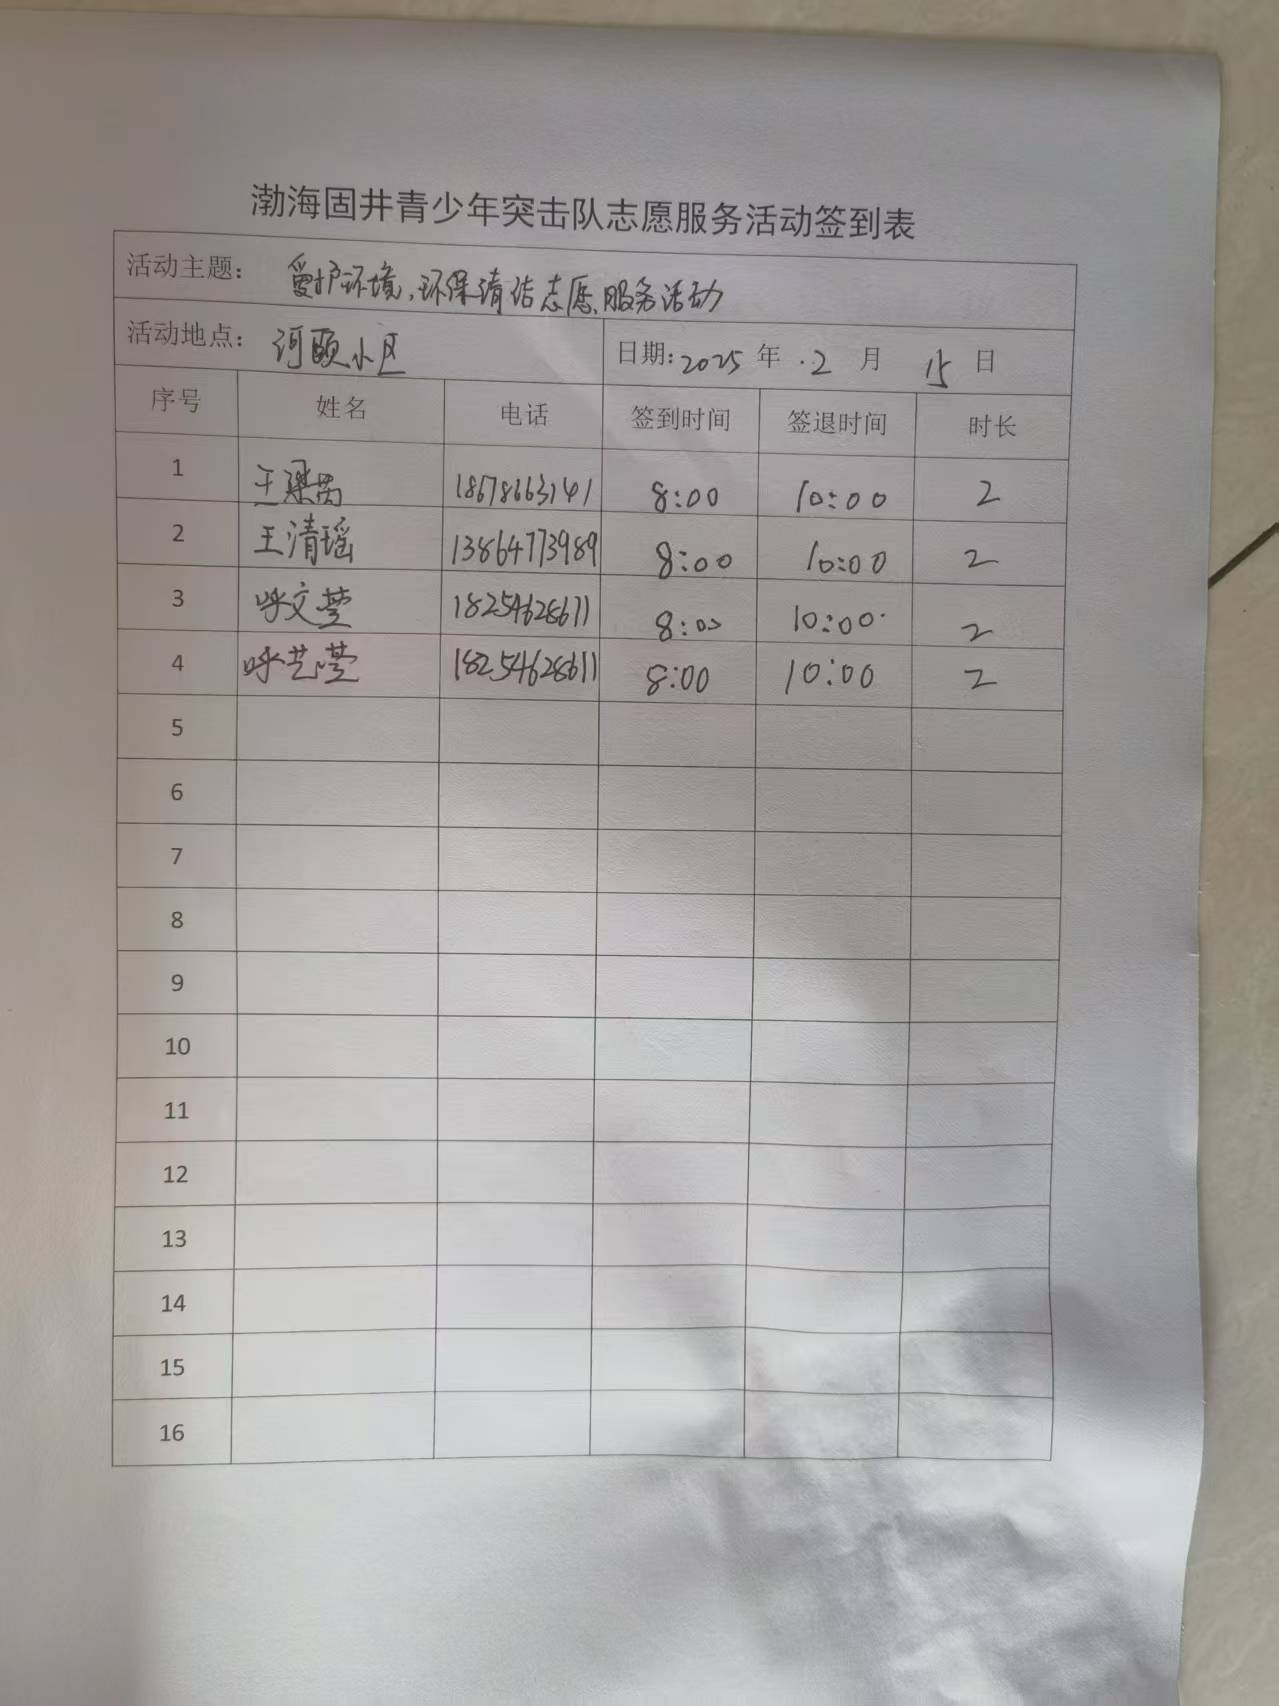 渤海固井青少年突击队志愿服务活动签到表
活动主题： 爱护环境，环保清洁志愿服务活动
活动地点： 河颐小区 日期：2025 年 2 月 15 日
序号 姓名 电话 签到时间 签退时间 时长
1 王 18678663141 8:00 10:00 2
2 王清瑶 13864773989 8:00 10:00 2
3 呼文莹 18254628611 8:00 10:00 2
4 呼艺莹 18254628611 8:00 10:00 2
5
6
7
8
9
10
11
12
13
14
15
16